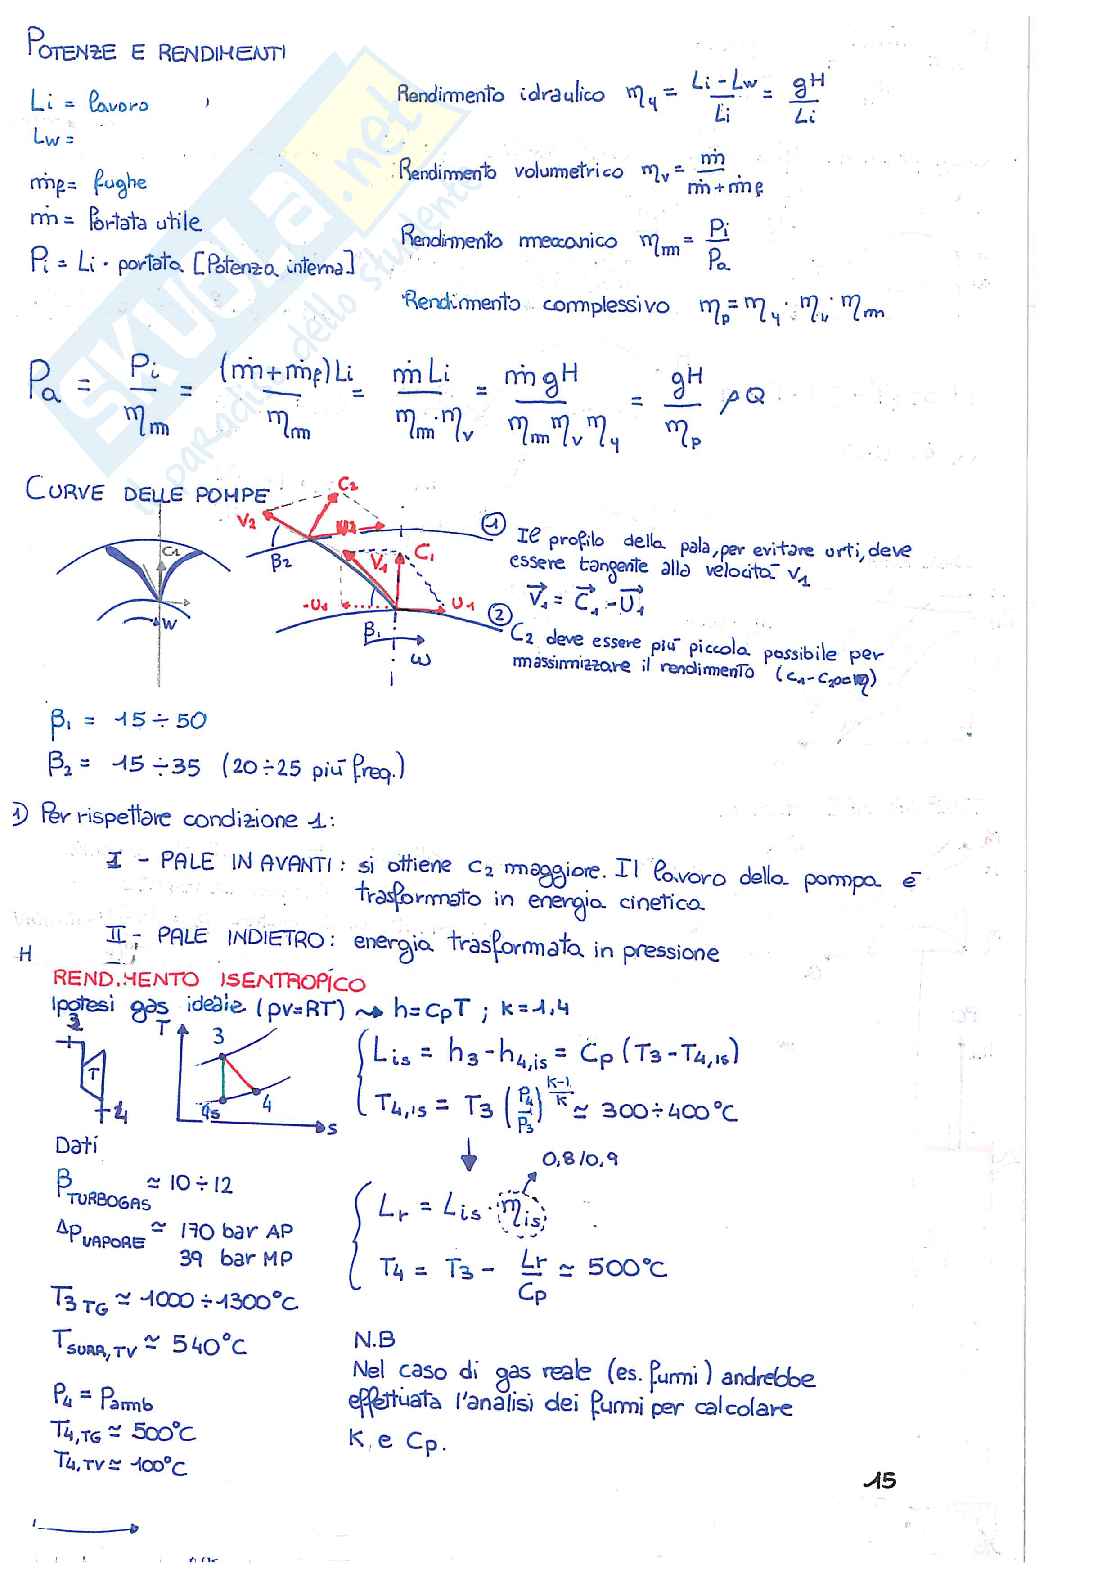 POTENZE E RENDIMENTI
Li = lavoro
Lw =
ṁf = fughe
ṁ = Portata utile
Pi = Li · portata [Potenza interna]
Rendimento idraulico ηy = (Li - Lw)/Li = gH/Li
Rendimento volumetrico ηv = ṁ/(ṁ + ṁf)
Rendimento meccanico ηm = Pi/Pa
Rendimento complessivo ηp = ηy · ηv · ηm
Pa = Pi/ηm = (ṁ + ṁf)Li/ηm = ṁ Li/(ηm · ηv) = ṁ gH/(ηm ηv ηy) = gH/ηp ρQ
SKUOLA.net
il paradiso dello studente
CURVE DELLE POMPE
C1
W
V2
C2
U2
β2
V1
C1
-U1
U1
β1
ω
1 Il profilo della pala, per evitare urti, deve
essere tangente alla velocità V1
V1 = C1 - U1
2 C2 deve essere più piccola possibile per
massimizzare il rendimento (C1-C2∝η)
β1 = 15 ÷ 50
β2 = 15 ÷ 35 (20 ÷ 25 più freq.)
1) Per rispettare condizione 1:
I - PALE IN AVANTI: si ottiene C2 maggiore. Il lavoro della pompa è
trasformato in energia cinetica
II - PALE INDIETRO: energia trasformata in pressione
H
RENDIMENTO ISENTROPICO
Ipotesi gas ideale (pv=RT) ⇝ h=CpT ; K=1,4
3
T
4
T
3
4s
4
s
Lis = h3 - h4,is = Cp (T3 - T4,is)
T4,is = T3 (P4/P3)^((K-1)/K) ≃ 300 ÷ 400°C
0,8/0,9
Lr = Lis · ηis
T4 = T3 - Lr/Cp ≃ 500°C
Dati
βTURBOGAS ≃ 10 ÷ 12
ΔPVAPORE ≃ 170 bar AP
39 bar MP
T3 TG ≃ 1000 ÷ 1300°C
TSURR,TV ≃ 540°C
P4 = Pamb
T4,TG ≃ 500°C
T4,TV ≃ 100°C
N.B
Nel caso di gas reale (es. fumi) andrebbe
effettuata l'analisi dei fumi per calcolare
K e Cp.
15